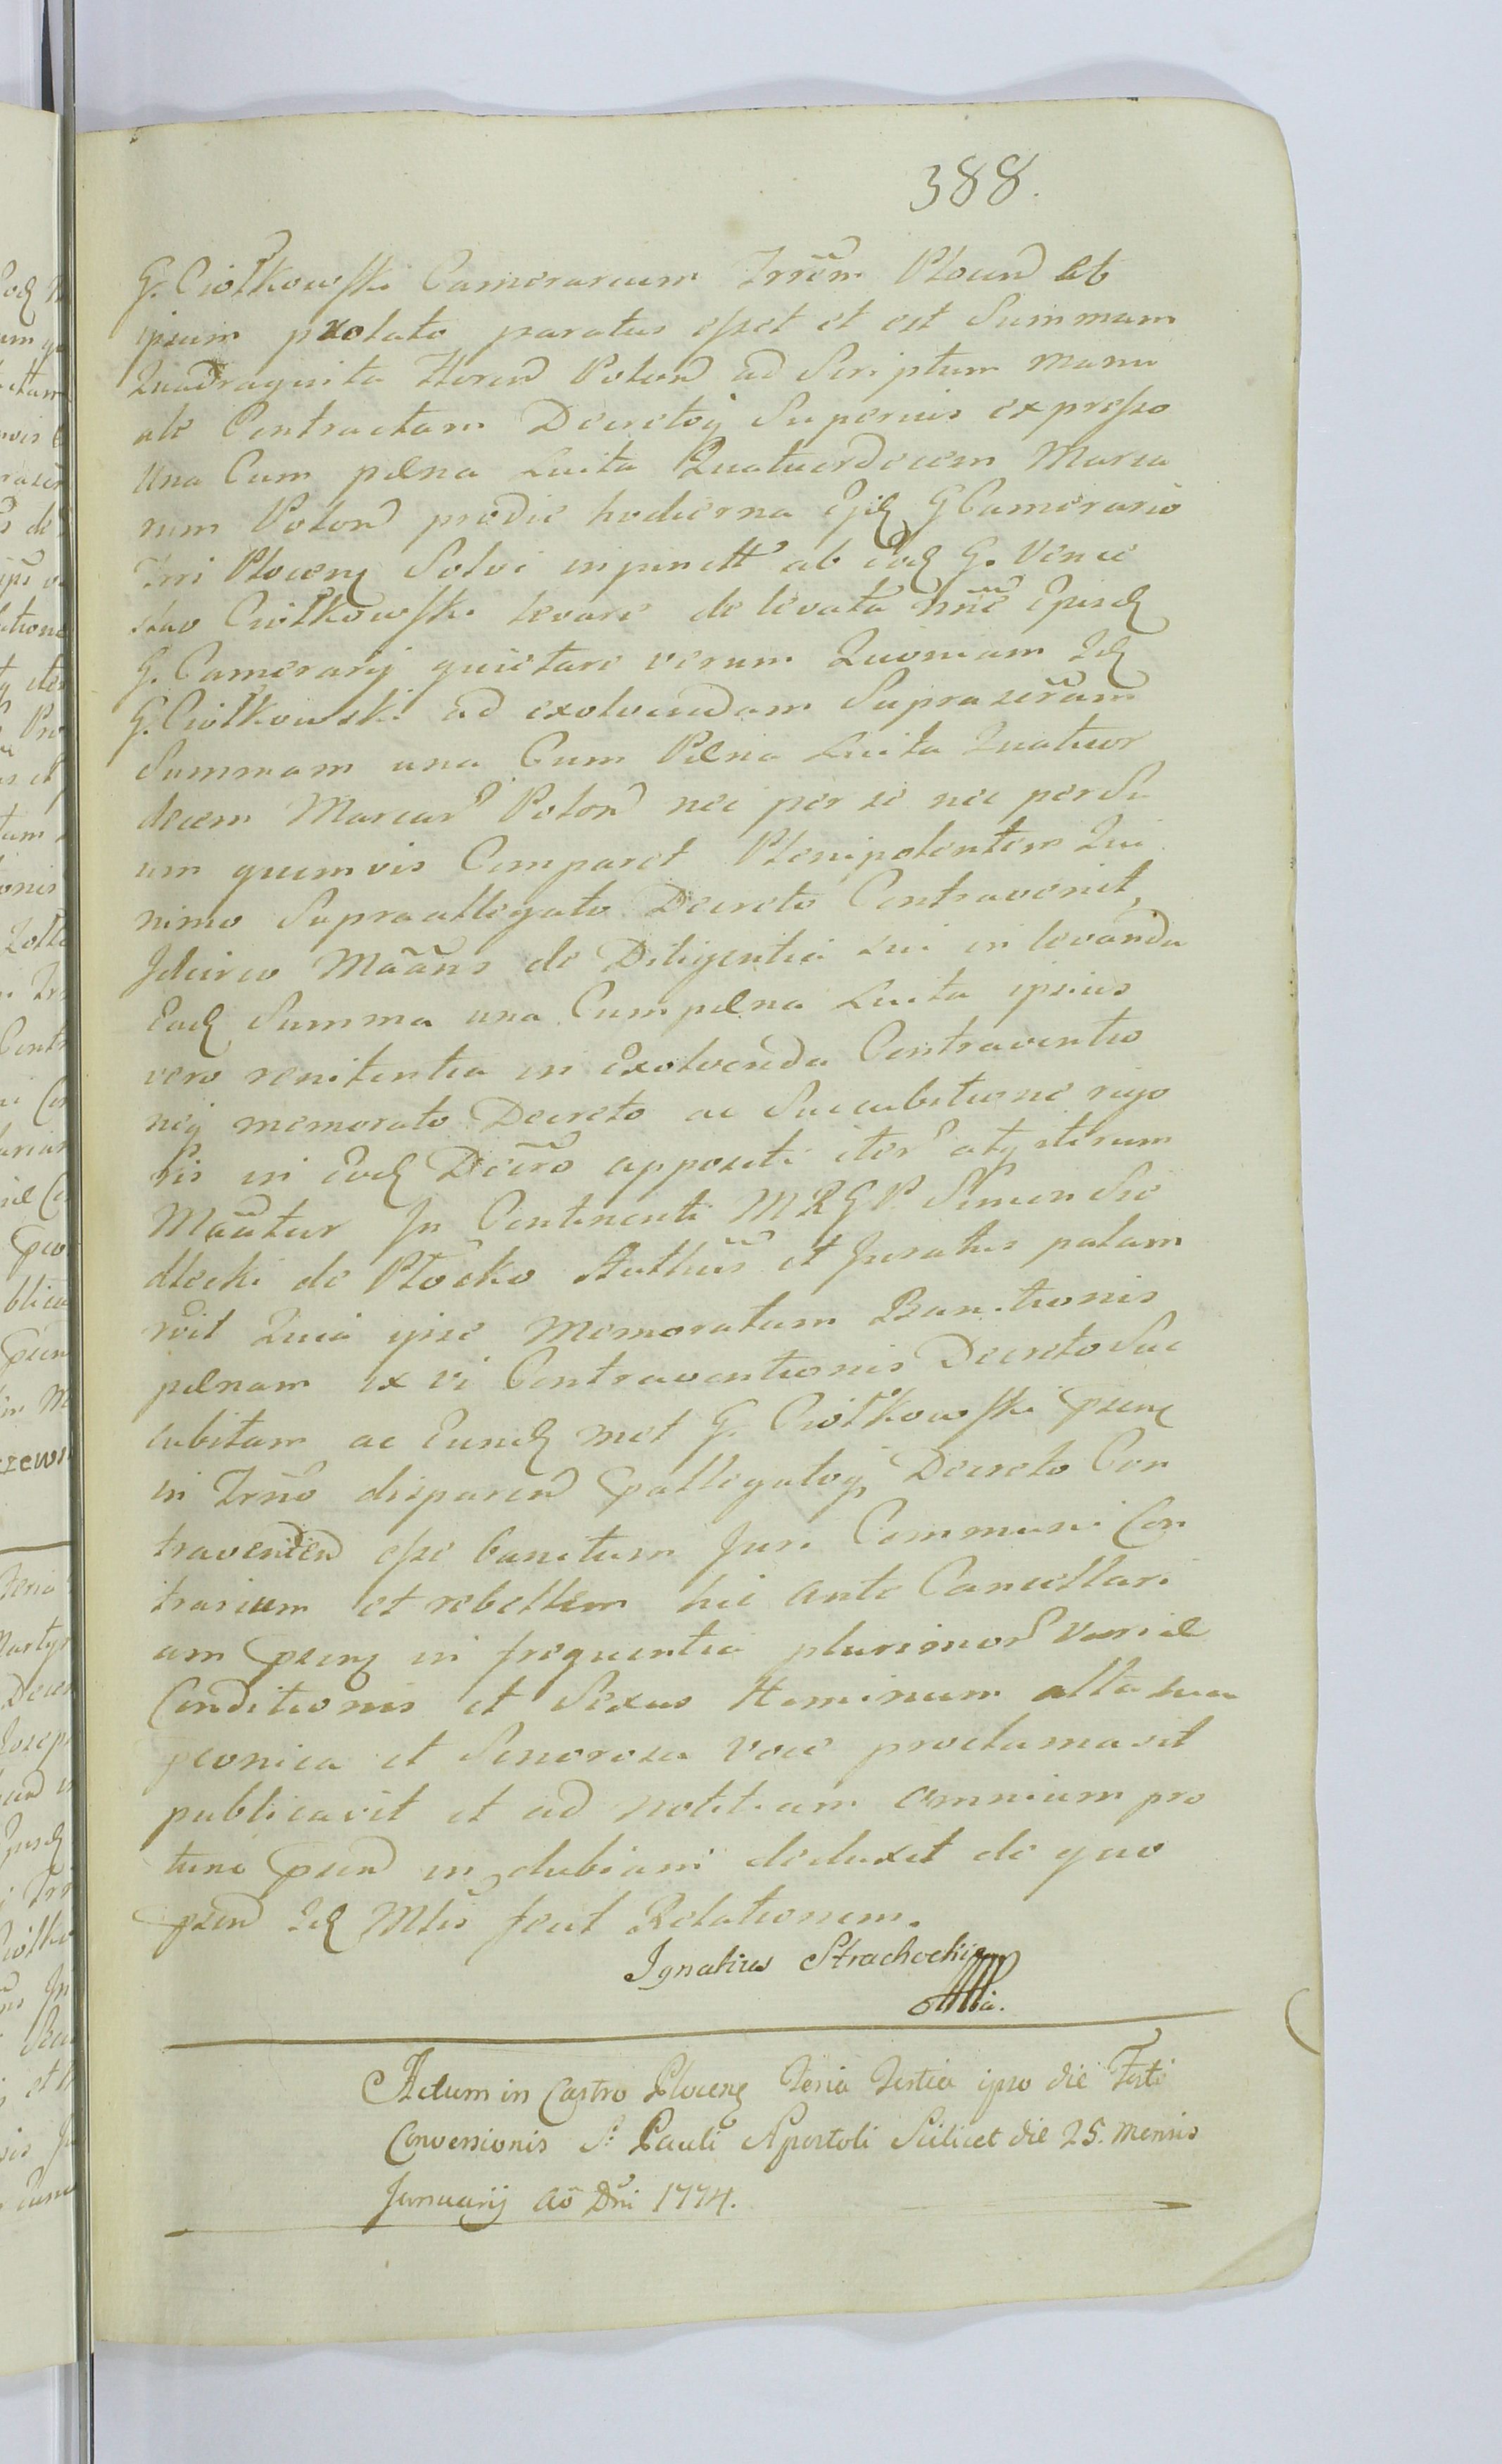 388.
G. Ciołkowski Camerarium Trrēm Plocen ab
ipsum prolato paratus esset et est Summam
Quadraginta floren Polon ad Scriptum manu
ale Contractam Decretoq Superius expresso
una Cum pæna Luita Quatuordecem Marca
rum Polon prodie hodierna Ejd G Camerario
Trri Plocens Solvi injunctt ab Eod G. Vence
slao Ciołkowski levare de levata hmē Ejusd
G. Camerarij quietare verum Quoniam Id
G. Ciołkowski ad exolvendam Suprascr̃am
Summam una Cum Pæna Luita Quatuor
decem Marcar Polon nec per se nec per Su
um quemvis Comparet Plenipotentem Qui
nimo Supraallegato Decreto Contravenit,
Idcirco Mããns de Diligentia sui in levanda
Ead Summa una Cum pæna Luita ipsius
vero renitentia in Exolvenda Contraventio
neq memorato Decreto ac Succubitione rigo
ris in Eod Decr̃o appositi iter atq iterum
Mããtur In Continenti M R G P Simon Sie
dlecki de Płocko Authūs et Juratus palam
rdit Quia ipse Memoratam Banitionis
pænam ex vi Contraventionis Decreto Suc
cubitam ac Eund met G. Ciołkowski psens
in Trñō disparen pallegatoq Decreto Con
travenien esse banitum Juri Communi Con
trarium et rebellem hic ante Cancellari
am psens in frequentia plurimor Variæ
Conditionis et Sexus Hominum alta sua
peonica et Sonorosa voce proclamavit
publicavit et ad notitiam omnium pro
tunc psen in dubiam deduxit de quo
psen Id Mlis fecit Relationem.
Ignatius Strachocki

Actum in Castro Plocens Feria Tertia ipso die Festi
Conversionis S: Pauli Apostoli Scilicet die 25. Mensis
Januarij Aō Dñi 1774.